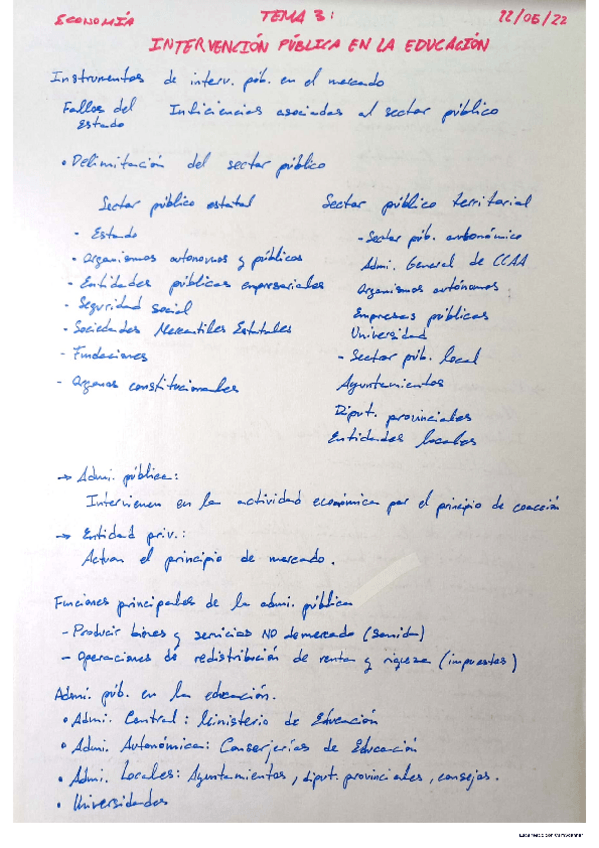 ECONOMÍA TEMA 3: 22/05/22
INTERVENCIÓN PÚBLICA EN LA EDUCACIÓN
Instrumentos de interv. púb. en el mercado
Fallos del Estado Inficiencias asociadas al sector público
• Delimitación del sector público
Sector público estatal
- Estado
- Organismos autonomos y públicos
- Entidades públicas empresariales
- Seguridad social
- Sociedades Mercantiles Estatales
- Fundaciones
- Organos constitucionales
Sector público territorial
- Sector púb. autonómico
Admi. General de CCAA
Organismos autónomos
Empresas públicas
Universidad
- Sector púb. local
Ayuntamientos
Diput. provinciales
Entidades locales
→ Admi. pública:
Intervienen en la actividad económica por el principio de coacción
→ Entidad priv.:
Actuan el principio de mercado.
Funciones principales de la admi. pública
- Producir bienes y servicios NO de mercado (sanida)
- Operaciones de redistribución de renta y riqueza (impuestos)
Admi. púb. en la educación.
• Admi. Central: Ministerio de Educación
• Admi. Autonómica: Conserjerías de Educación
• Admi. Locales: Ayuntamientos, diput. provinciales, consejos.
• Universidades